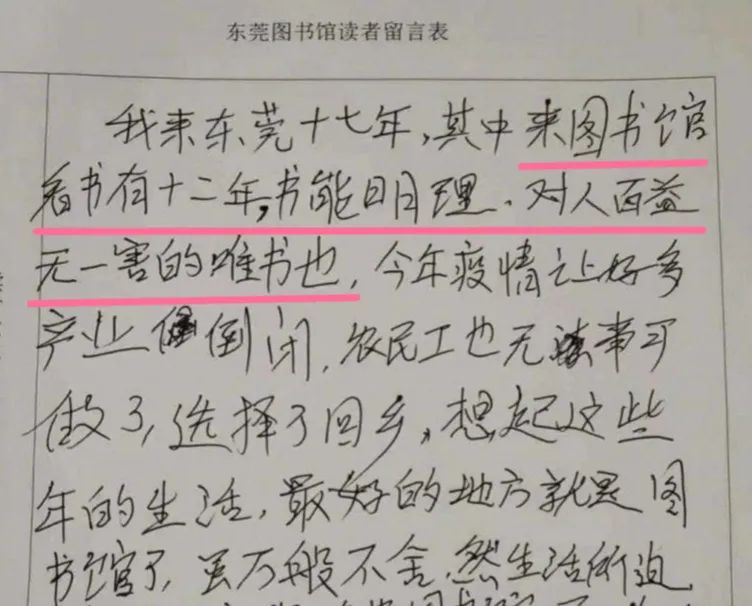 东莞图书馆读者留言表
我来东莞十七年，其中来图书馆
看书有十二年，书能明理，对人百益
无一害的唯书也，今年疫情让好多
产业倒闭，农民工也无事可
做了，选择了回乡，想起这些
年的生活，最好的地方就是图
书馆了，虽万般不舍，然生活所迫